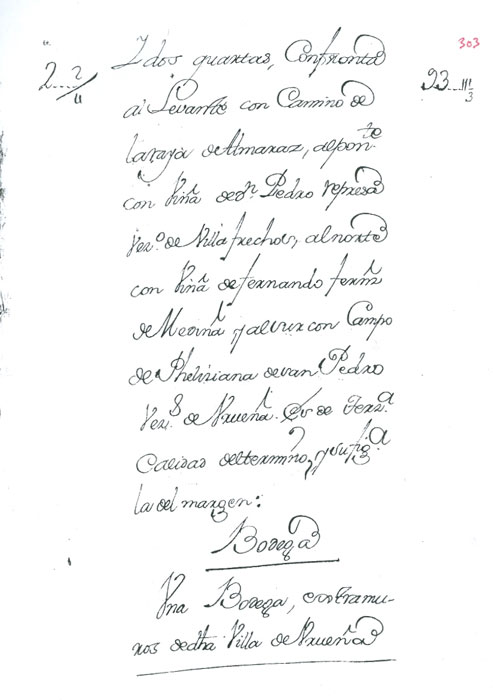 303
2 2/4
23 III/3
Y dos quartas, Confronta
al Levante con Camino de
la raya de Almaraz, al pon.te
con Viña de D.n Pedro represa
Vez.o de Villafrechos, al norte
con Viña de fernando ferrnz
de Medina y al sur con Campo
de Pheliziana de san Pedro
Vez.s de Urueña. Es de Terz.a
Calidad del termino, y su fig.a
la del margen:
Bodega
Una Bodega, extramu-
ros de dha Villa de Urueña